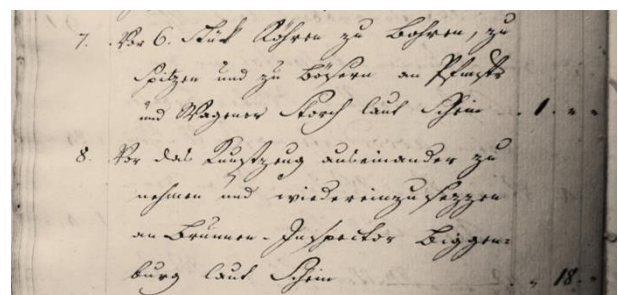 7. Vor 6. Stük Röhren zu Bohren, zu
Spitzen und zu Bößern an
und Wagener Storch laut Schein . 1. " "
8. Vor das Kunstzeug auseinander zu
nehmen und wiedereinzusezzen
an Brunnen-Inspector Biggen=
burg laut Schein . " 18. "